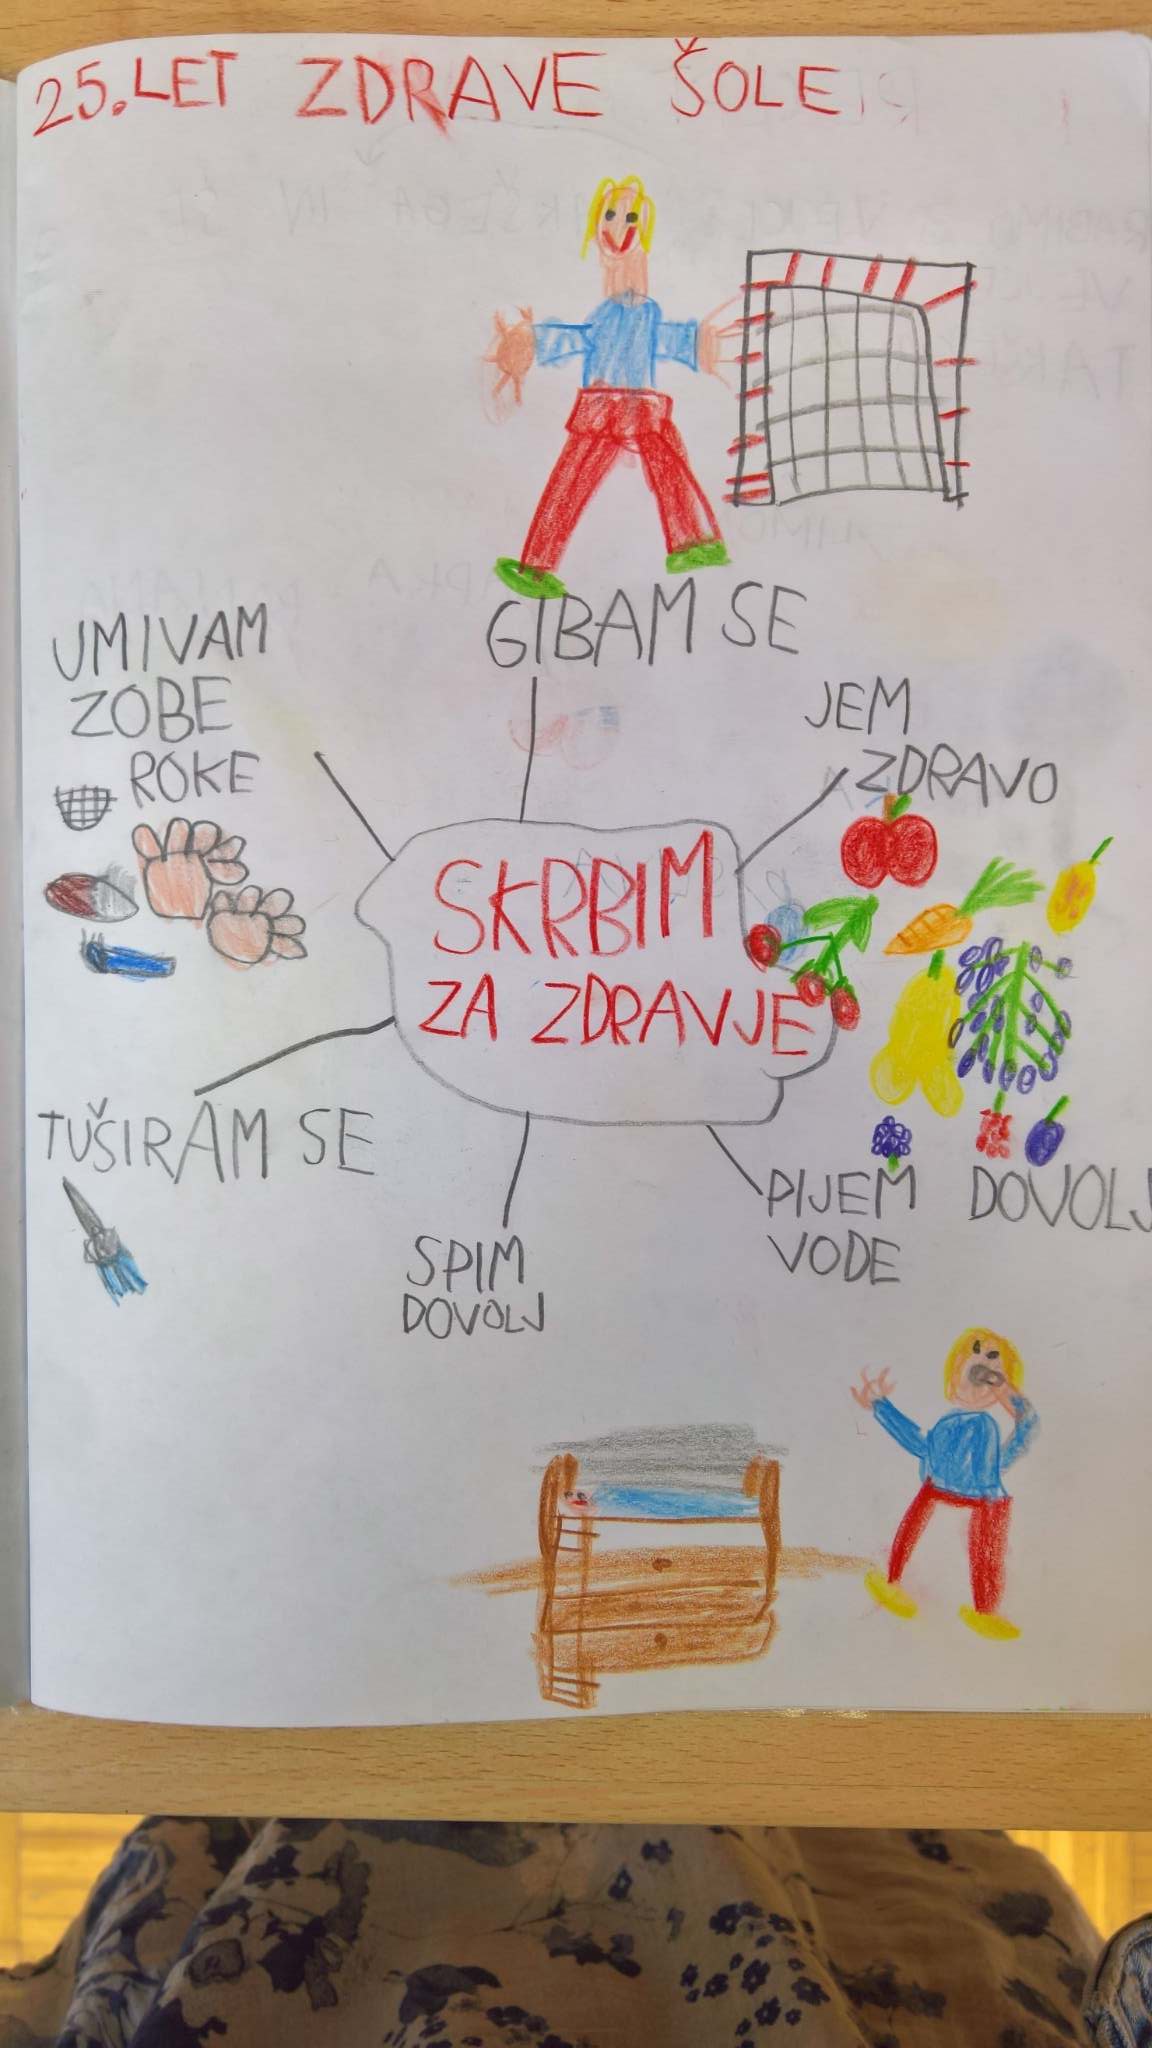 25. LET ZDRAVE ŠOLE
GIBAM SE
UMIVAM
ZOBE
ROKE
JEM
ZDRAVO
SKRBIM
ZA ZDRAVJE
TUŠIRAM SE
PIJEM DOVOLJ
VODE
SPIM
DOVOLJ